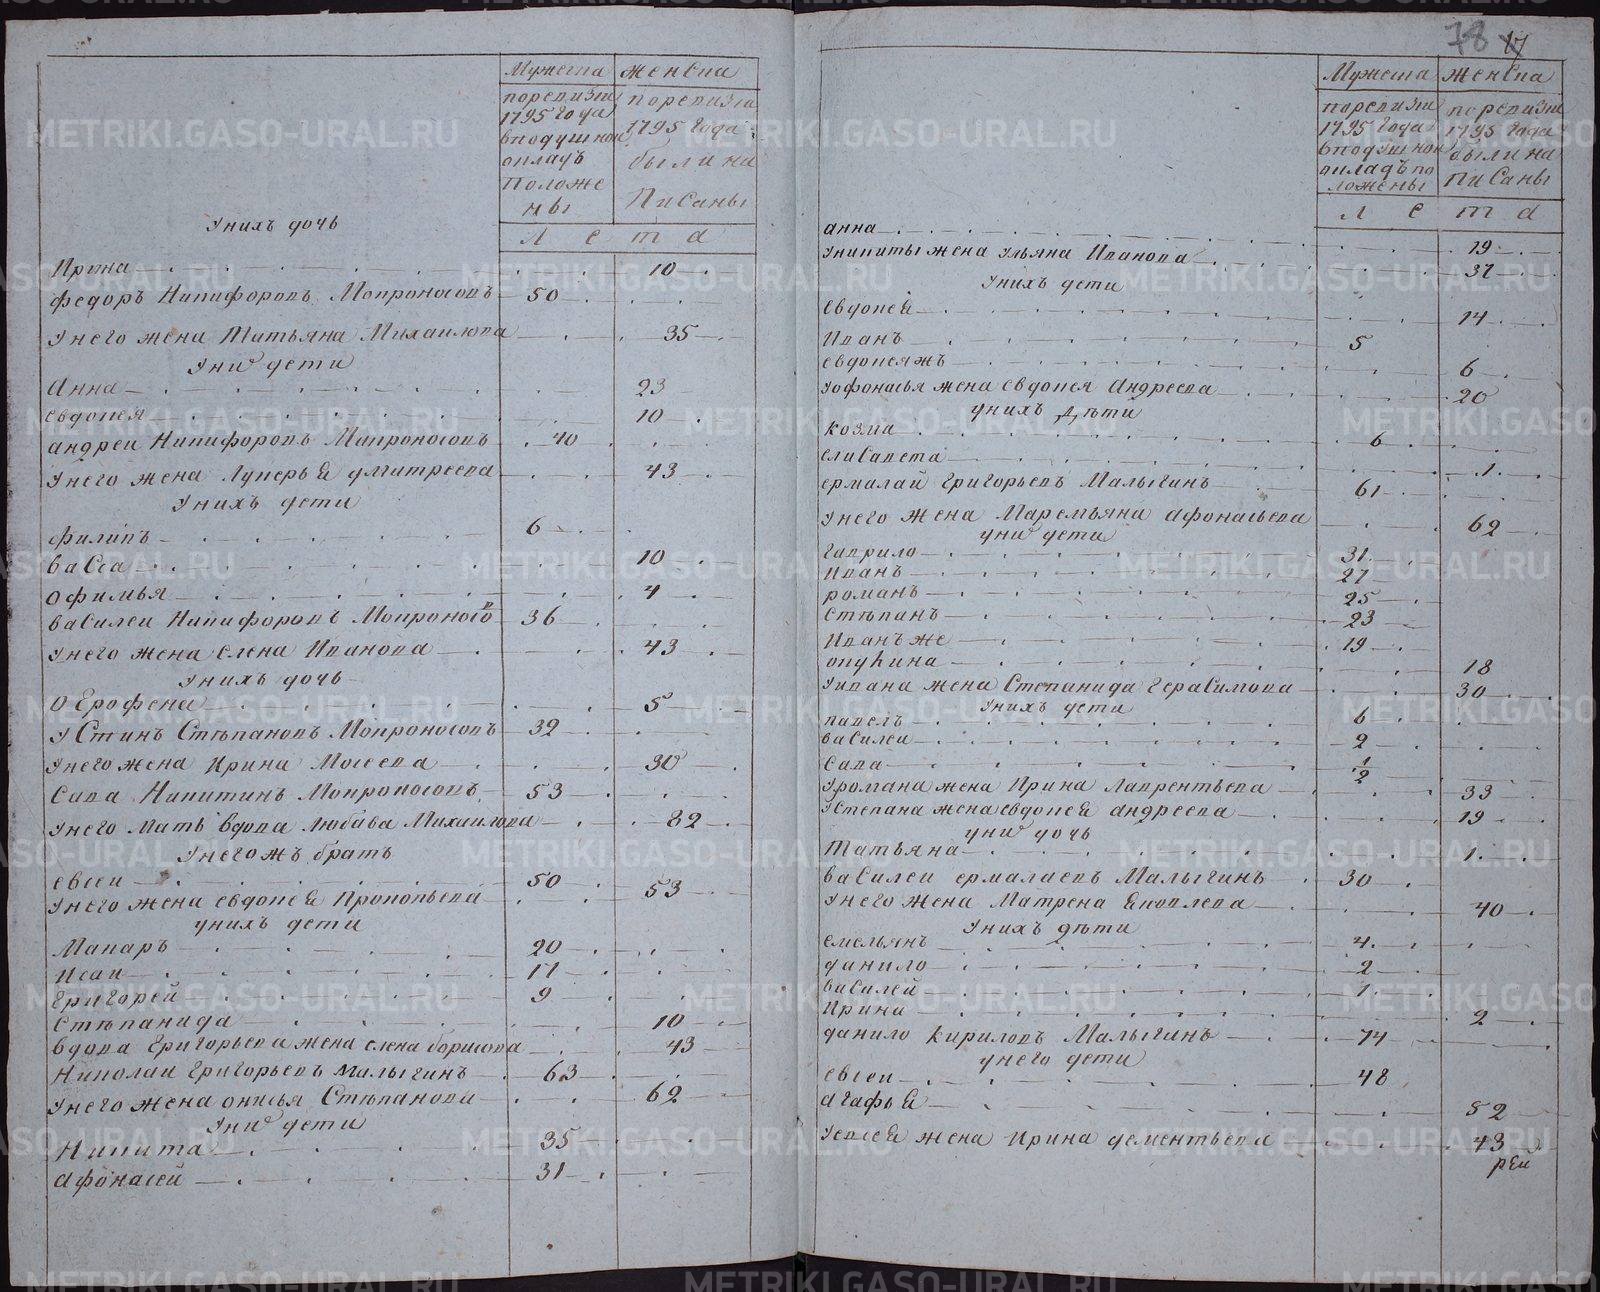 Мужеска женска
поревизии поревизии
1795 года 1795 года
вподушной были на
окладъ писаны
Положе
ны
Л е т а
Унихъ дочь
Ирина 10
федоръ Никифоровъ Мокроносовъ 50
Унего жена Татьяна Михаилова 35
Уни дети
Анна 23
евдокея 10
андреи Никифоровъ Мокроносовъ 40
Унего жена Лукерья дмитреева 43
Унихъ дети
филипъ 6
васса 10
офимья 4
василеи Никифоровъ Мокроносовъ 36
Унего жена елена Иванова 43
Унихъ дочь
Ерофена 5
Устинъ Степановъ Мокроносовъ 32
Унего жена Ирина Мосеева 30
Сава Никитинъ Мокроносовъ 53
Унего мать вдова любава Михаилова 82
Унегожъ братъ
евсеи 50
Унего жена евдокея Прокопьева 53
унихъ дети
Макаръ 20
Исаи 17
Григорей 9
Степанида 10
вдова Григорьева жена елена борисова 43
Николаи Григорьевъ малыгинъ 63
Унего жена окисья Степанова 62
Уни дети
Никита 35
афонасей 31
78 17
Мужеска женска
поревизии поревизии
1795 года 1795 года
вподушной были на
окладъ по писаны
ложены
Л е т а
анна 19
Уникиты жена ульяна Иванова 37
Унихъ дети
евдокея 14
Иванъ 5
евдокеяжъ 6
Уофонасья жена евдокея Андреева 20
унихъ дѣти
козма 6
елисавета 1
ермалай Григорьевъ Малыгинъ 61
Унего жена Маремьяна афонасьева 62
уни дети
гаврило 31
Иванъ 27
романъ 25
степанъ 23
Иванъ же 19
окулина 18
Уивана жена Степанида Герасимова 30
Унихъ дети
павелъ 6
василеи 2
Сава 1/2
Уромана жена Ирина Лаврентьева 33
Устепана жена евдокея андреева 19
уни дочь
Татьяна 1
василеи ермалаевъ Малыгинъ 30
Унего жена Матрена Яковлева 40
Унихъ дѣти
емельянъ 4
данило 2
василей 1
Ирина 2
данило кириловъ Малыгинъ 74
унего дети
евсеи 48
агафья 52
Уевсея жена Ирина дементьева 43
рѣи